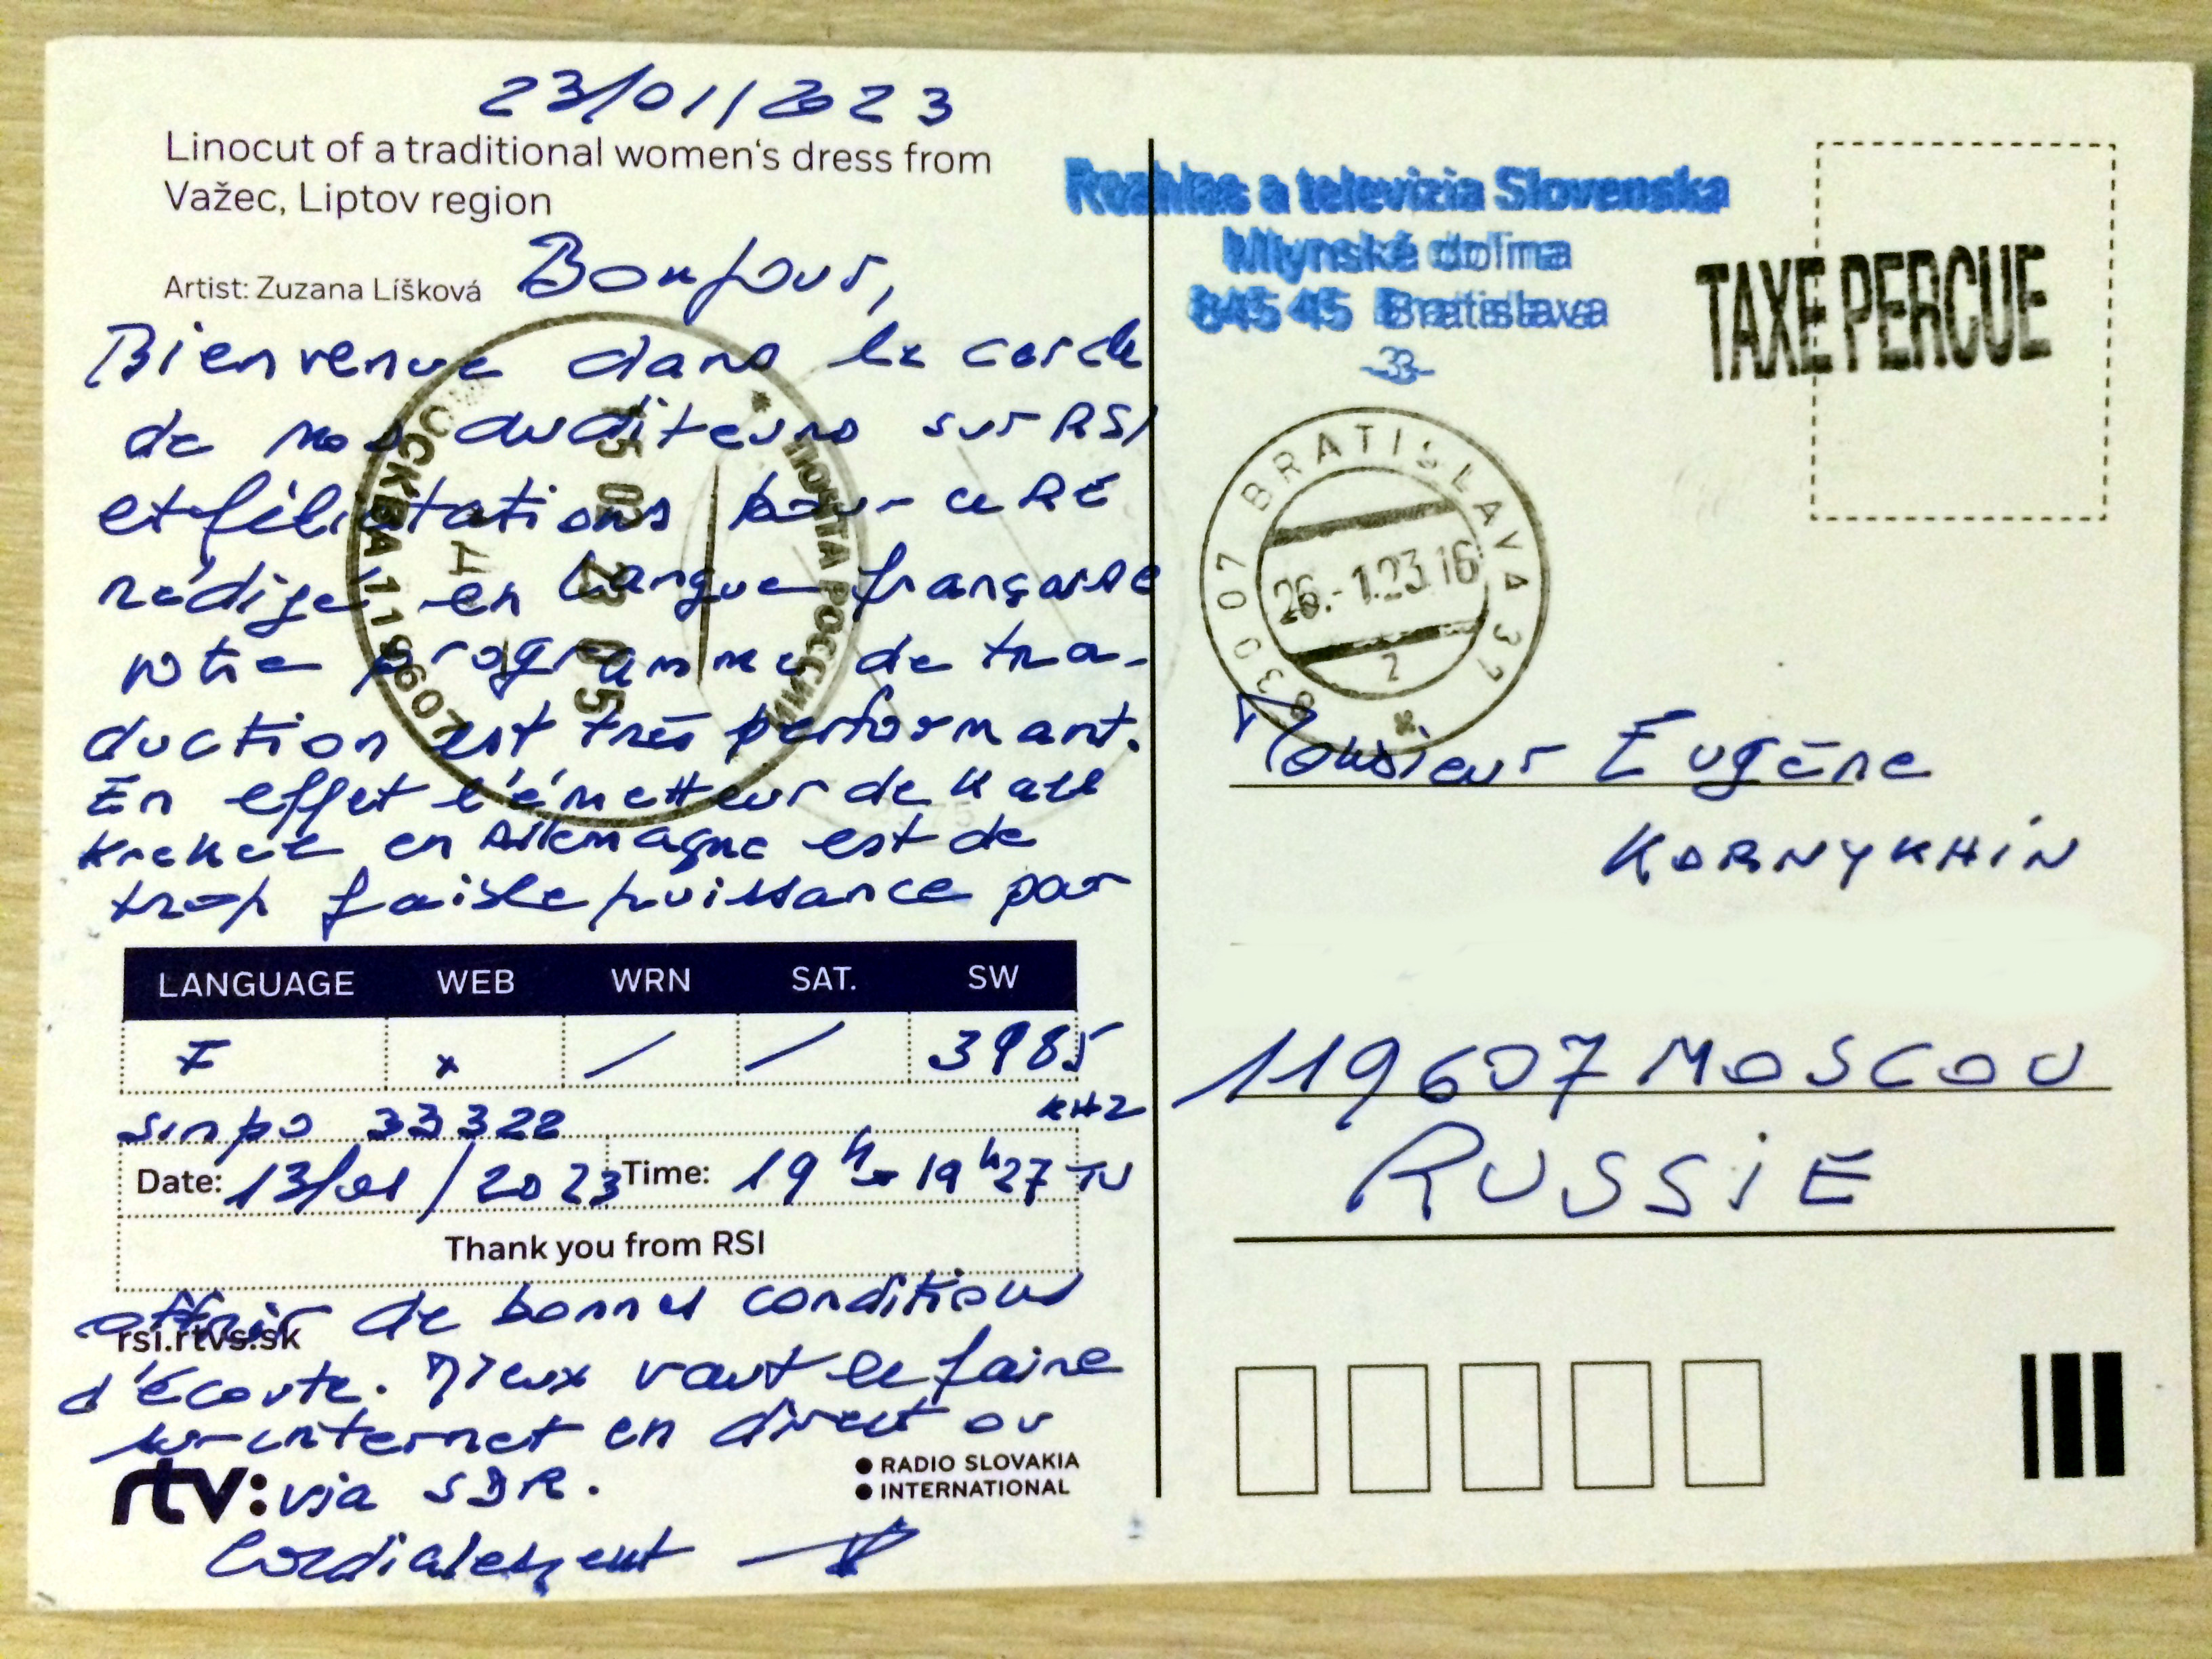 23/01/2023
Linocut of a traditional women's dress from
Važec, Liptov region
Artist: Zuzana Líšková
Bonjour,
Bienvenue dans le cercle
de nos auditeurs sur RSI
et félicitations pour ce RE
rédigé en langue française
votre programme de tra-
duction est très performant.
En effet l'émetteur de Kall
Krekel en Allemagne est de
trop faible puissance pour
LANGUAGE WEB WRN SAT. SW
F x / / 3985
KHZ
sinpo 33322
Date: 13/01/2023 Time: 19h30-19h27 TU
Thank you from RSI
offrir de bonnes conditions
rsi.rtvs.sk
d'écoute. Mieux vaut le faire
sur internet en direct ou
rtv: via SDR.
RADIO SLOVAKIA
INTERNATIONAL
Cordialement
Rozhlas a televízia Slovenska
Mlynská dolina
845 45 Bratislava
-33-
TAXE PERCUE
BRATISLAVA 37
83007
26.-1.23.16
2
ПОЧТА РОССИИ
МОСКВА 119607
Monsieur Eugène
KORNYKHIN
119607 MOSCOU
RUSSIE